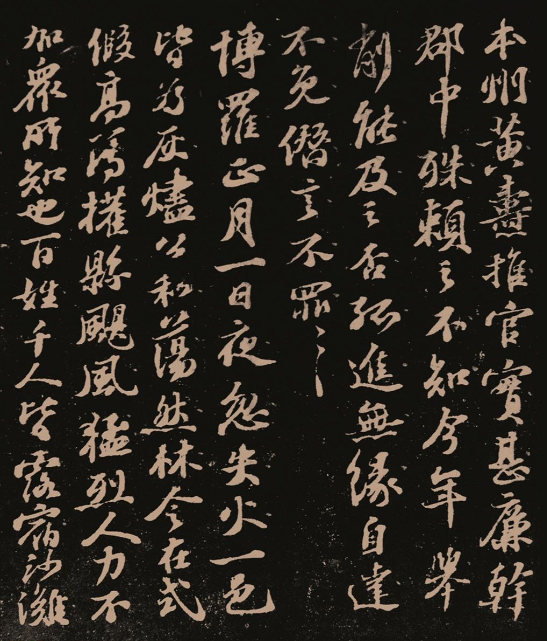 本州黃燾推官實甚廉幹
郡中殊賴之不知今年舉
削能及之否孤進無緣自達
不免僭言不罪〻〻
博羅正月一日夜忽失火一邑
皆為灰燼公私蕩然林令在式
假高簿權縣颶風猛烈人力不
加眾所知也百姓千人皆露宿沙灘